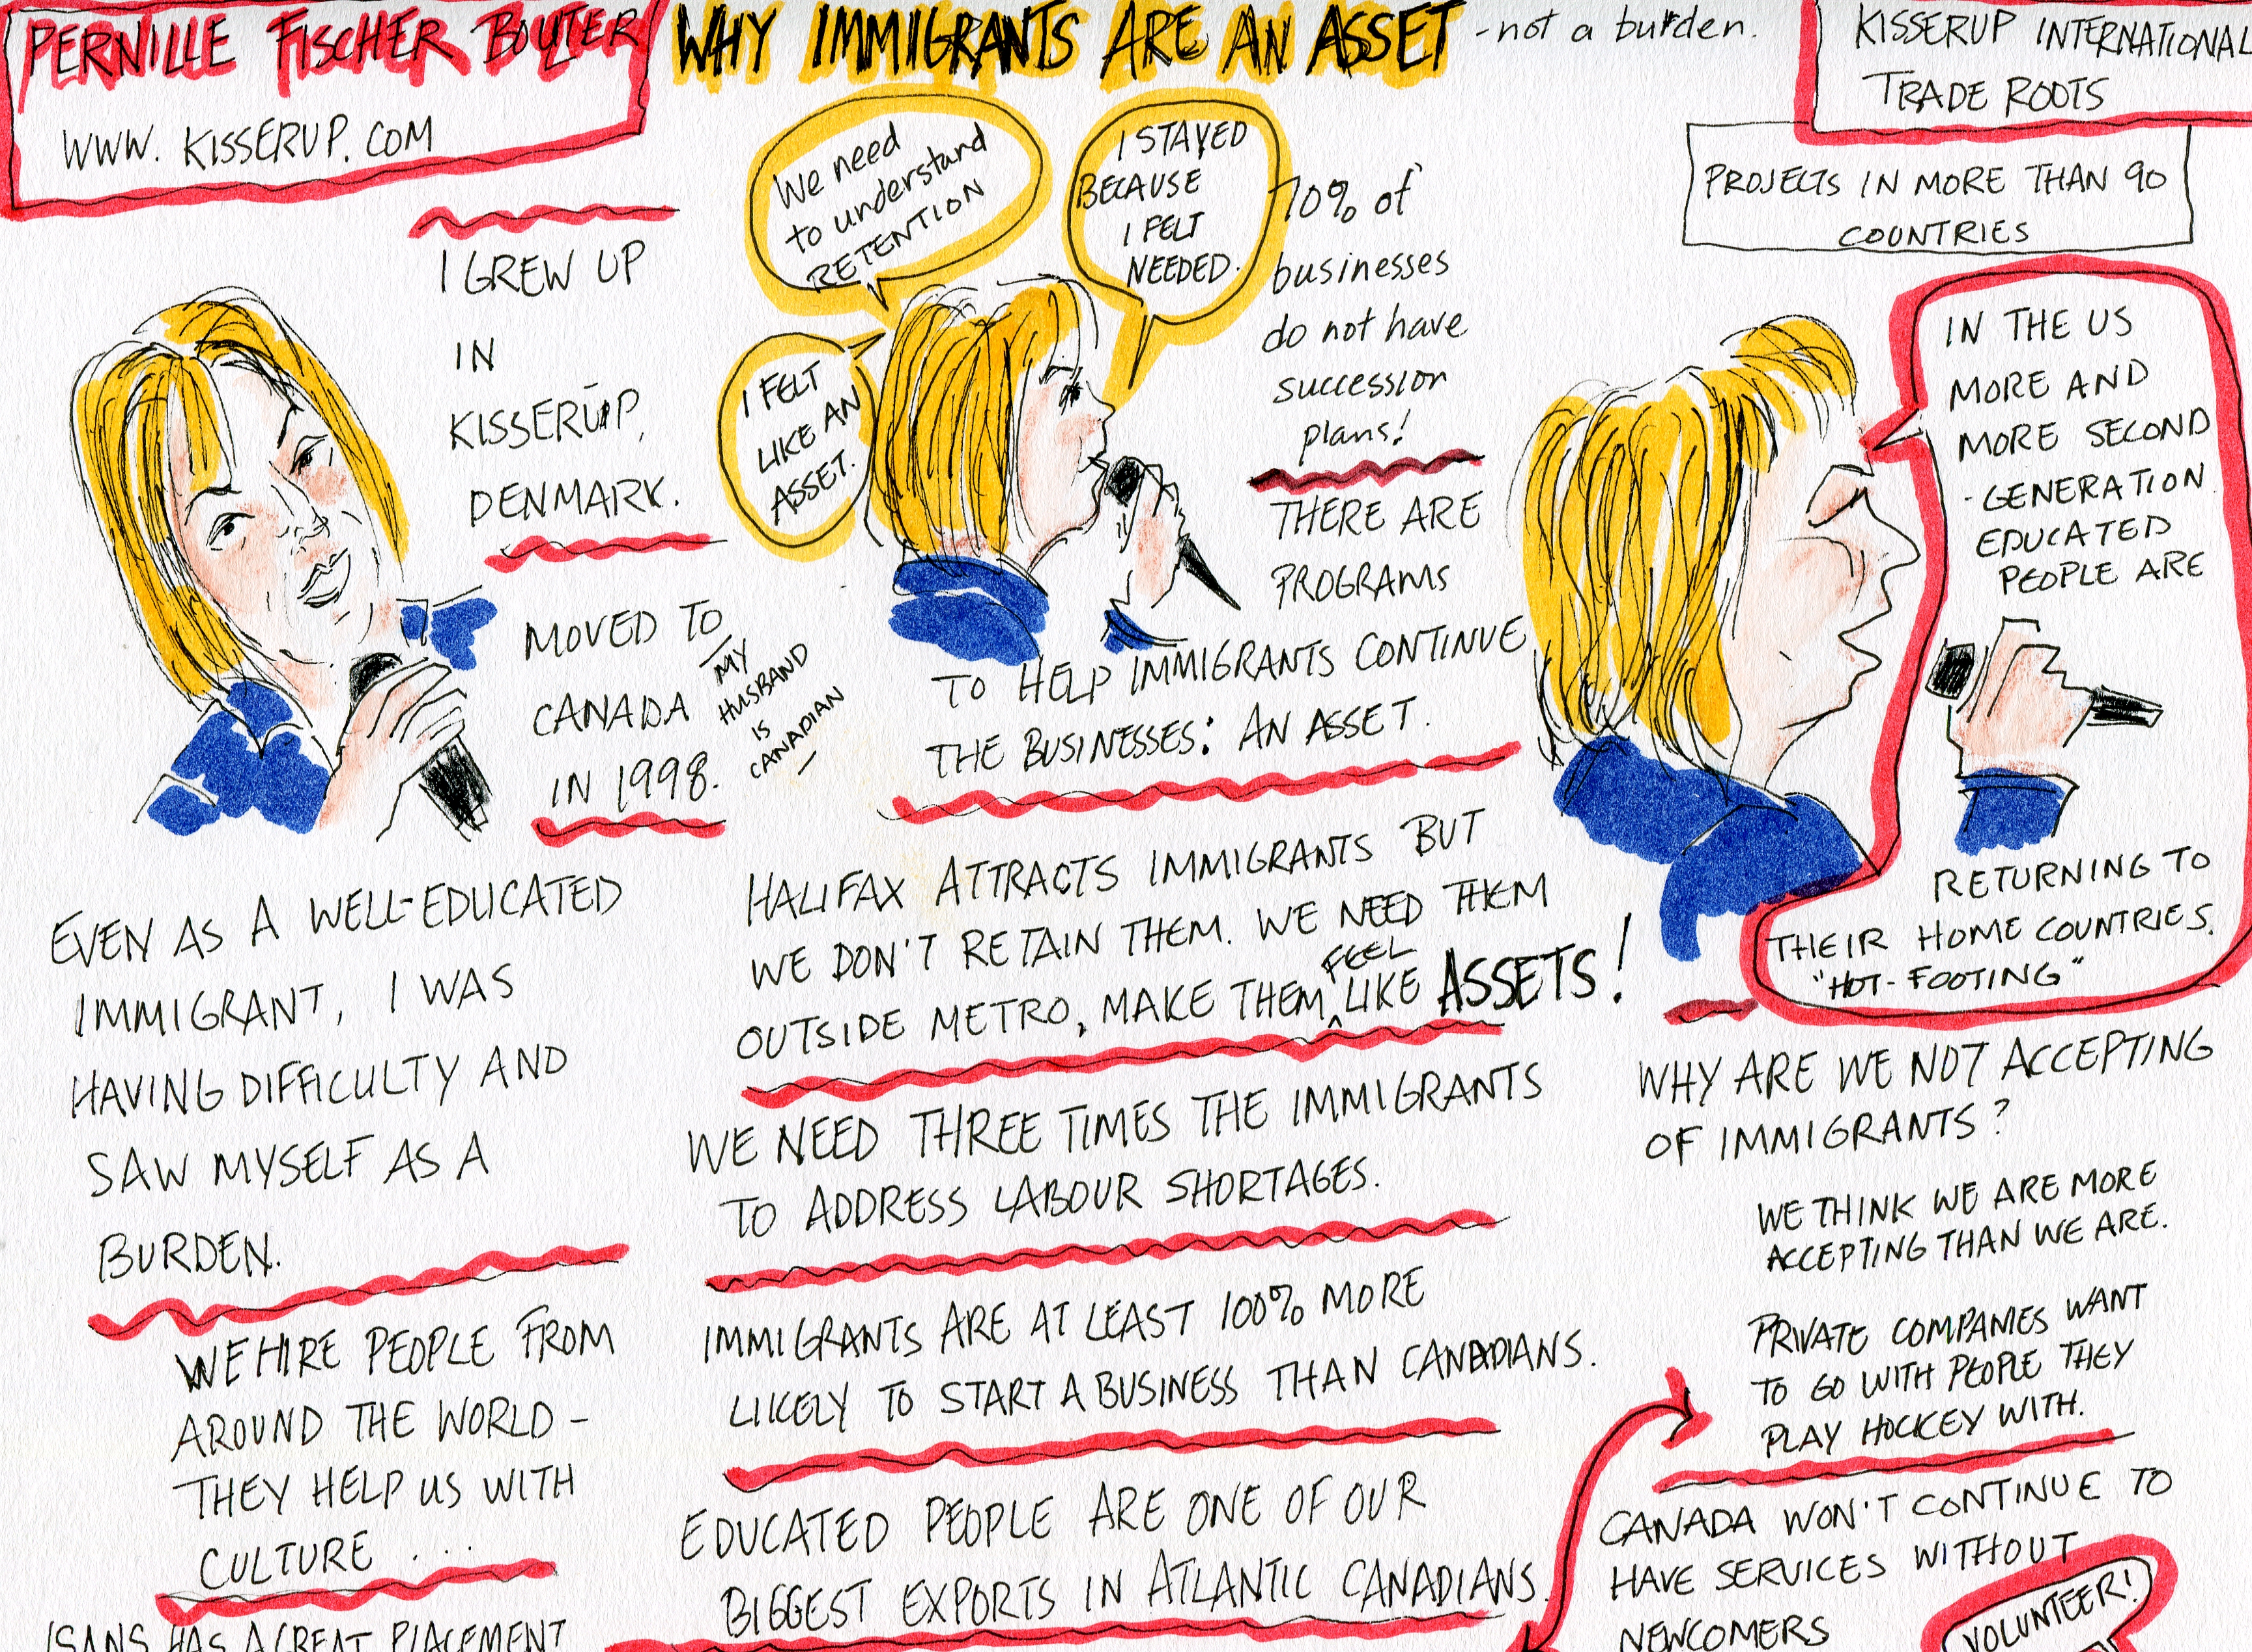 PERNILLE FISCHER BOUTER
WWW. KISSERUP. COM
WHY IMMIGRANTS ARE AN ASSET - not a burden.
KISSERUP INTERNATIONAL
TRADE ROOTS
PROJECTS IN MORE THAN 90
COUNTRIES
I GREW UP
IN
KISSERUP,
DENMARK.
MOVED TO
CANADA
IN 1998.
MY
HUSBAND
IS
CANADIAN
EVEN AS A WELL-EDUCATED
IMMIGRANT, I WAS
HAVING DIFFICULTY AND
SAW MYSELF AS A
BURDEN.
WE HIRE PEOPLE FROM
AROUND THE WORLD -
THEY HELP US WITH
CULTURE ...
ISANS HAS A GREAT PLACEMENT
We need
to understand
RETENTION
I STAYED
BECAUSE
I FELT
NEEDED.
I FELT
LIKE AN
ASSET.
70% of
businesses
do not have
succession
plans!
THERE ARE
PROGRAMS
TO HELP IMMIGRANTS CONTINUE
THE BUSINESSES: AN ASSET.
HALIFAX ATTRACTS IMMIGRANTS BUT
WE DON'T RETAIN THEM. WE NEED THEM
OUTSIDE METRO, MAKE THEM FEEL LIKE ASSETS!
WE NEED THREE TIMES THE IMMIGRANTS
TO ADDRESS LABOUR SHORTAGES.
IMMIGRANTS ARE AT LEAST 100% MORE
LIKELY TO START A BUSINESS THAN CANADIANS.
EDUCATED PEOPLE ARE ONE OF OUR
BIGGEST EXPORTS IN ATLANTIC CANADIANS.
IN THE US
MORE AND
MORE SECOND
-GENERATION
EDUCATED
PEOPLE ARE
RETURNING TO
THEIR HOME COUNTRIES.
"HOT-FOOTING"
WHY ARE WE NOT ACCEPTING
OF IMMIGRANTS?
WE THINK WE ARE MORE
ACCEPTING THAN WE ARE.
PRIVATE COMPANIES WANT
TO GO WITH PEOPLE THEY
PLAY HOCKEY WITH.
CANADA WON'T CONTINUE TO
HAVE SERVICES WITHOUT
NEWCOMERS
VOLUNTEER!